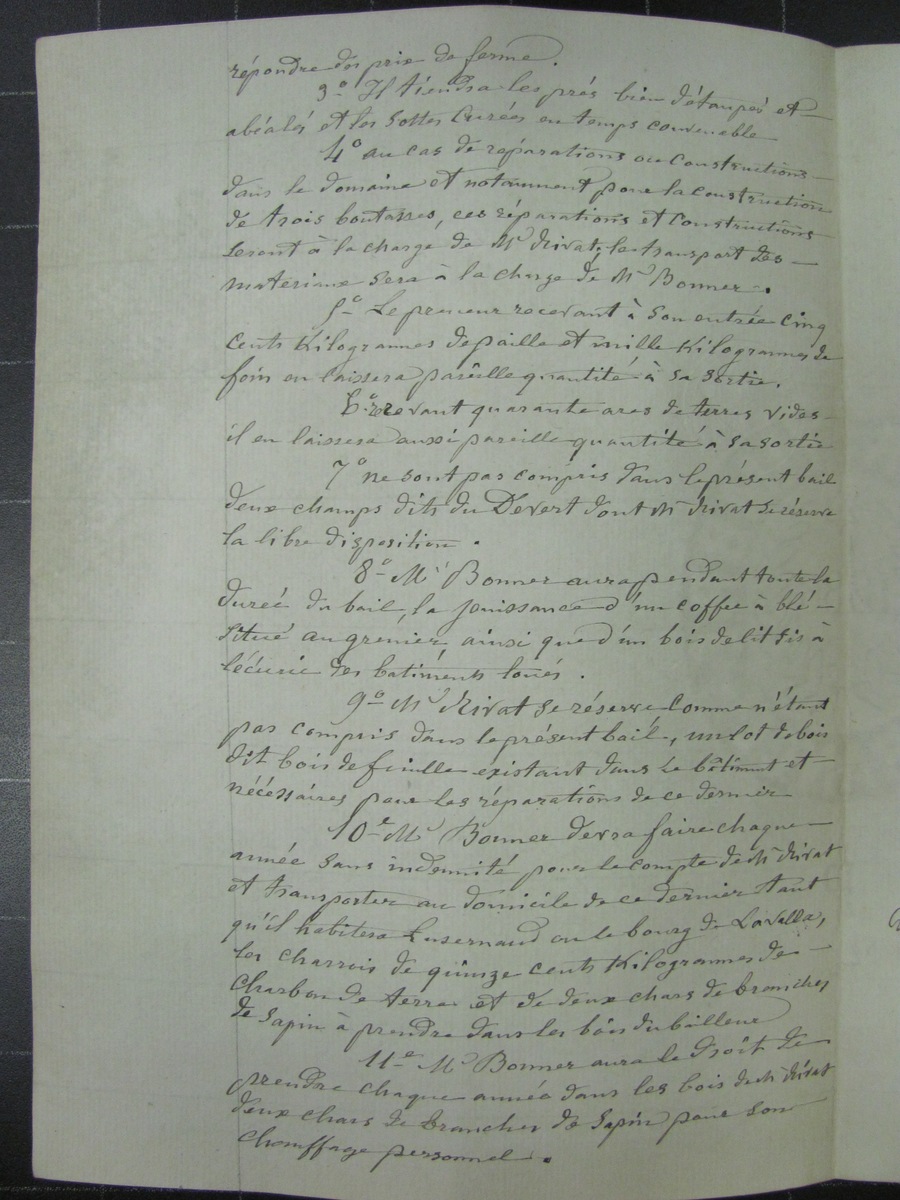 répondre des prix de ferme.
3° Il tiendra les prés bien détaupés et
abéalés et les sottes curées en temps convenable
4° au cas de réparations ou constructions
dans le domaine et notamment pour la construction
de trois boutasses, ces réparations et constructions
seront à la charge de Mr Rivat; le transport des
materiaux sera à la charge de Mr Bonner.
5° Le preneur recevant à son entrée cinq
cents Kilogrammes de paille et mille Kilogrammes de
foin en laissera pareille quantité à sa sortie.
6° recevant quarante ares de terres vides
il en laissera aussi pareille quantité à sa sortie
7° ne sont pas compris dans le présent bail
deux champs dits du Devert dont Mr Rivat se réserve
la libre disposition.
8° Mr Bonner aura pendant toute la
durée du bail, la jouissance d'un coffre à blé
situé au grenier, ainsi que d'un bois de lit sis à
l'écurie des batiments loués.
9° Mr Rivat se réserve comme n'étant
pas compris dans le présent bail, un lot de bois
dit bois de feuille existant dans le bâtiment et
nécessaires pour les réparations de ce dernier
10e Mr Bonner devra faire chaque
année sans indemnité pour le compte de Mr Rivat
et transporter au domicile de ce dernier tant
qu'il habitera Luzernaud ou le bourg de La Valla,
les charrois de quinze cents Kilogrammes de
charbon de terre et de deux chars de branches
de sapin à prendre dans les bois du bailleur
11e Mr Bonner aura le droit de
prendre chaque année dans les bois de Mr Rivat
deux chars de branches de sapin pour son
chauffage personnel.